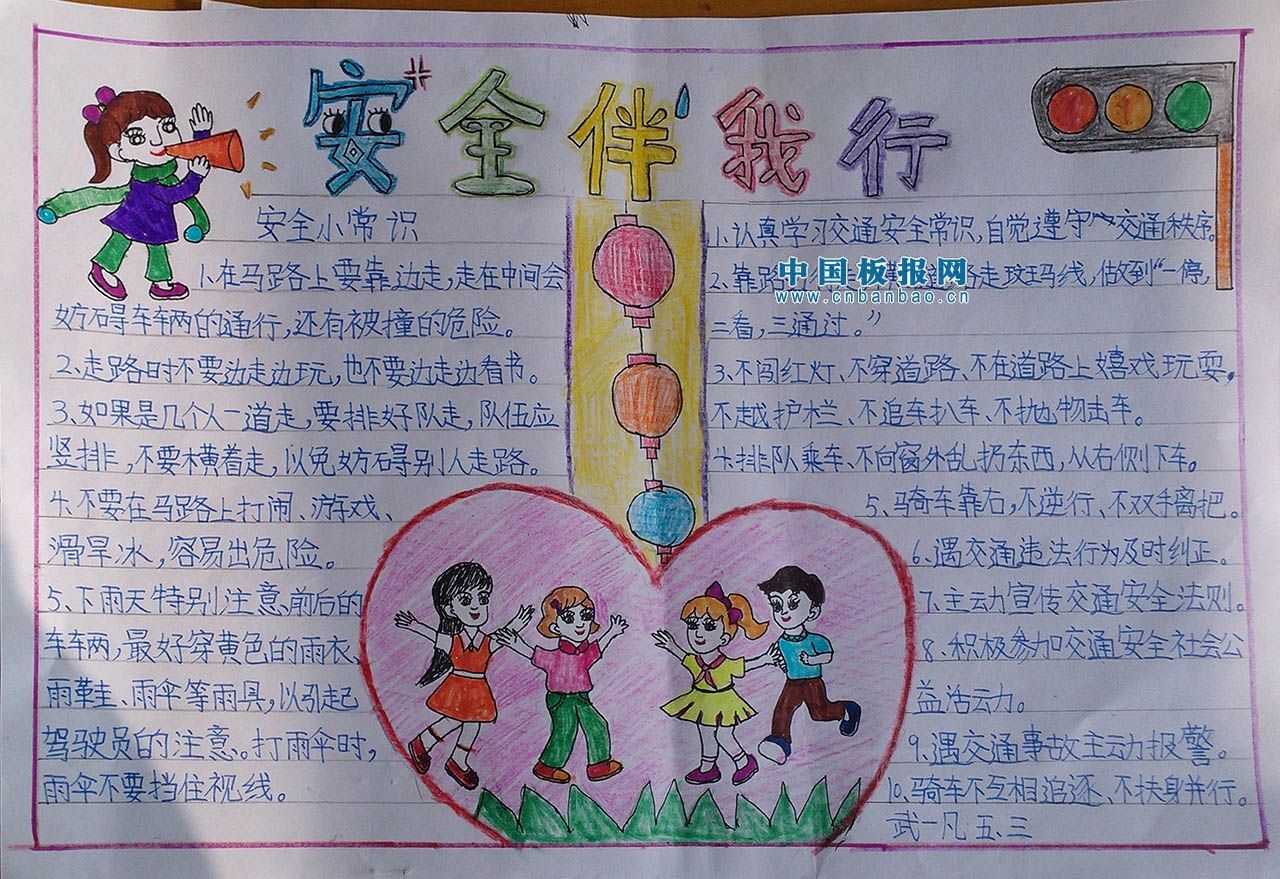 安全伴我行
安全小常识
1、在马路上要靠边走,走在中间会
妨碍车辆的通行,还有被撞的危险。
2、走路时不要边走边玩,也不要边走边看书。
3、如果是几个人一道走,要排好队走,队伍应
竖排,不要横着走,以免妨碍别人走路。
4、不要在马路上打闹、游戏、
滑旱冰,容易出危险。
5、下雨天特别注意前后的
车辆,最好穿黄色的雨衣、
雨鞋、雨伞等雨具,以引起
驾驶员的注意。打雨伞时,
雨伞不要挡住视线。
1、认真学习交通安全常识,自觉遵守交通秩序。
2、靠路 路走玟玛线,做到“一停,
二看,三通过。”
3、不闯红灯、不穿道路、不在道路上嬉戏玩耍,
不越护栏、不追车扒车、不抛物击车。
4、排队乘车、不向窗外乱扔东西,从右侧下车。
5、骑车靠右,不逆行、不双手离把。
6、遇交通违法行为及时纠正。
7、主动宣传交通安全法则。
8、积极参加交通安全社会公
益活动。
9、遇交通事故主动报警。
10、骑车不互相追逐、不扶身并行。
武一凡:五、三
中国板报网
www.cnbanbao.cn